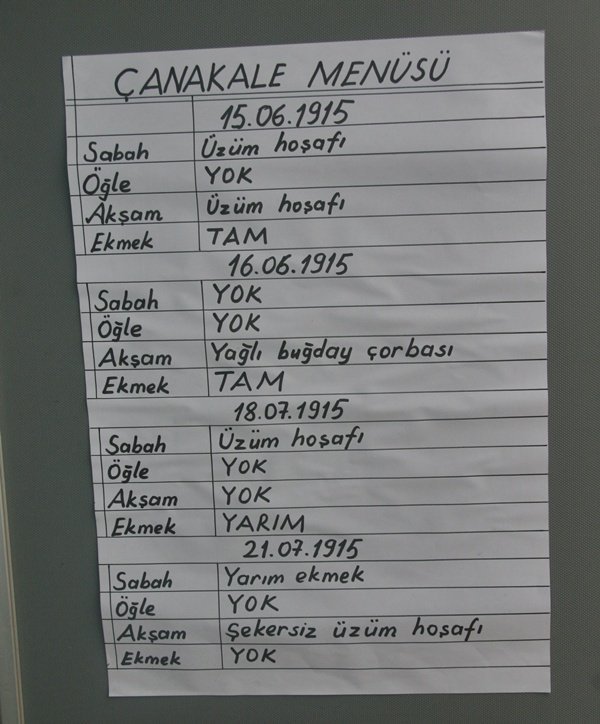 ÇANAKALE MENÜSÜ
15.06.1915
Sabah Üzüm hoşafı
Öğle YOK
Akşam Üzüm hoşafı
Ekmek TAM
16.06.1915
Sabah YOK
Öğle YOK
Akşam Yağlı buğday çorbası
Ekmek TAM
18.07.1915
Sabah Üzüm hoşafı
Öğle YOK
Akşam YOK
Ekmek YARIM
21.07.1915
Sabah Yarım ekmek
Öğle YOK
Akşam Şekersiz üzüm hoşafı
Ekmek YOK